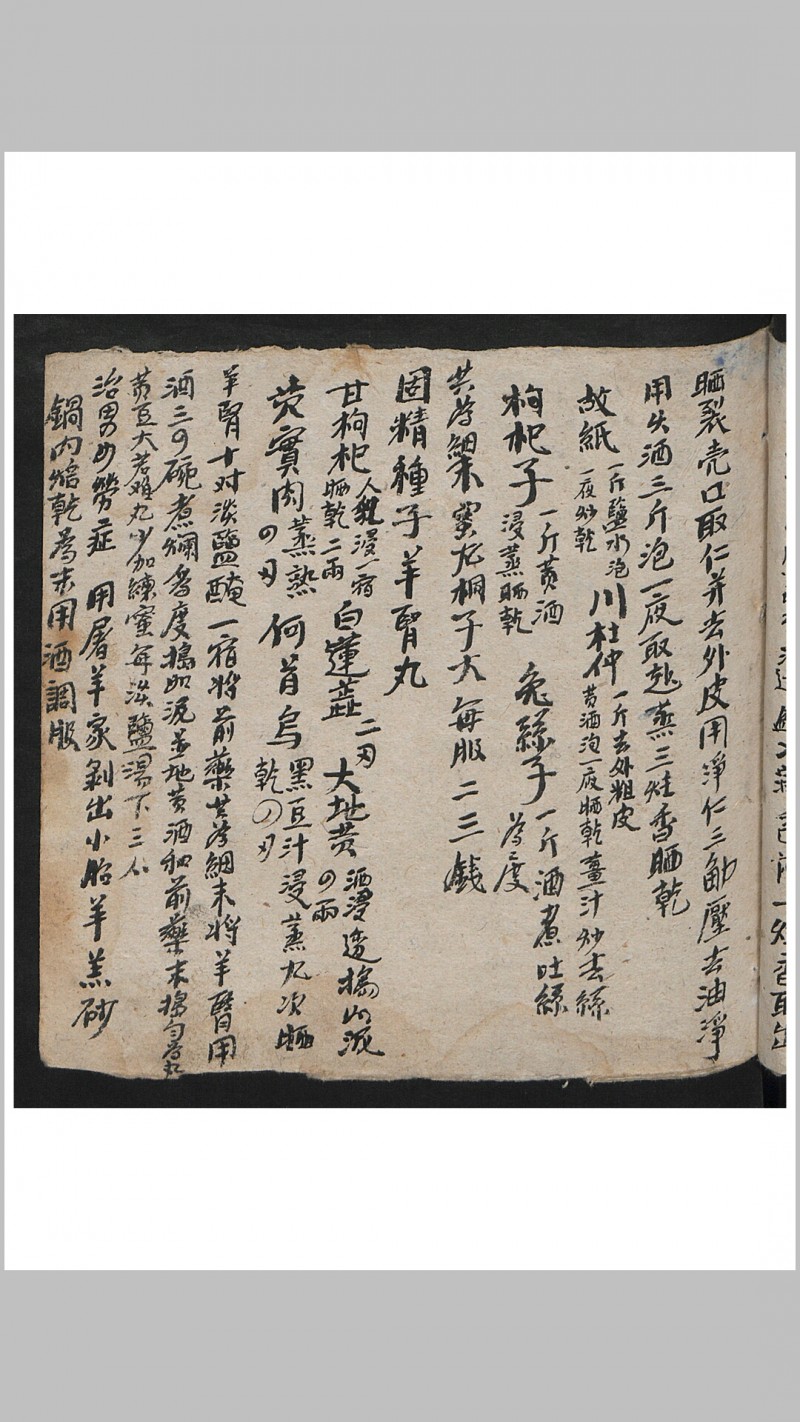 晒裂壳口取仁并去外皮用淨仁三觔壓去油淨
用火酒三斤泡一夜取起蒸三炷香晒乾
故紙 一斤鹽水泡一夜炒乾 川杜仲 一斤去外粗皮黄酒泡一夜晒乾薑汁炒去絲
枸杞子 一斤黄酒浸蒸晒乾 兔絲子 一斤酒煮吐絲為度
共為細末蜜丸桐子大每服二三錢
固精種子羊腎丸
甘枸杞 人乳浸一宿晒乾二兩 白蓮蕊 二刄 大地黄 の兩酒浸透搗如泥
芡實肉 蒸熟の刄 何首烏 黑豆汁浸蒸九次晒乾の刄
羊腎十对淡鹽醃一宿将前藥共為細末将羊腎用
酒三の碗煮爛為度搗如泥並地黄酒和前藥末搗勻為丸
黄豆大若难丸少加練蜜每淡鹽湯下三
治男女勞症 用屠羊家剝出小胎羊羔砂
鍋内焙乾為末用酒調服